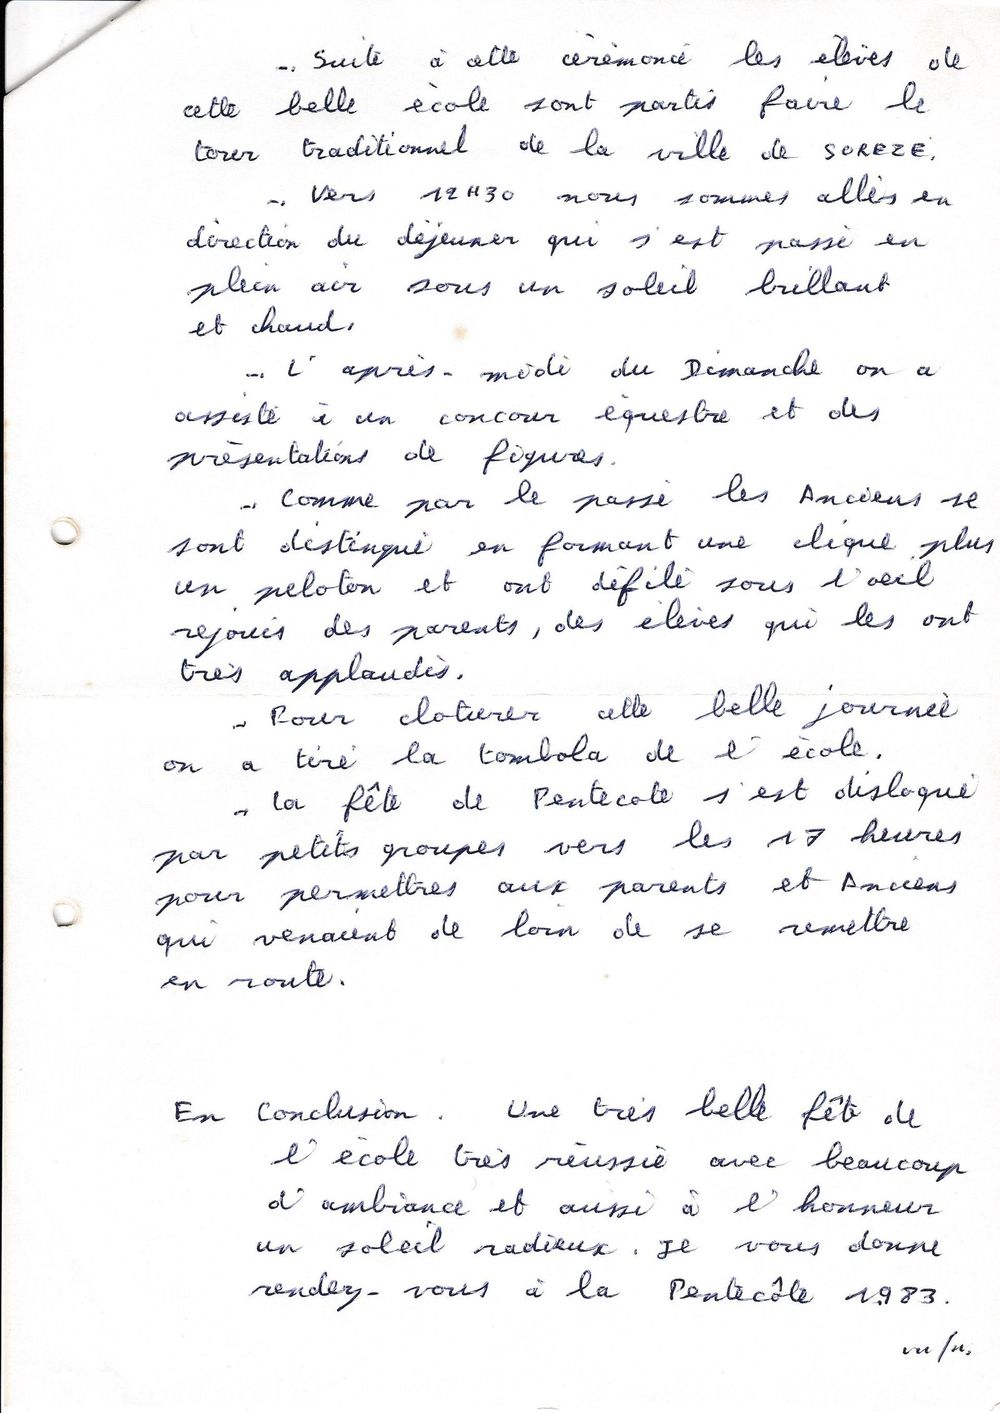 -. Suite à cette cérémonie les élèves de
cette belle école sont partis faire le
tour traditionnel de la ville de SOREZE.
-. Vers 12H30 nous sommes allés en
direction du déjeuner qui s'est passé en
plein air sous un soleil brillant
et chaud.
-. L'après-midi du Dimanche on a
assisté à un concour équestre et des
présentations de figures.
-. Comme par le passé les Anciens se
sont distingué en formant une clique plus
un peloton et ont défilé sous l'oeil
rejouis des parents, des élèves qui les ont
très applaudis.
-. Pour cloturer cette belle journée
on a tiré la tombola de l'école.
-. La fête de Pentecote s'est disloqué
par petits groupes vers les 17 heures
pour permettres aux parents et Anciens
qui venaient de loin de se remettre
en route.
En Conclusion. Une très belle fête de
l'école très réussie avec beaucoup
d'ambiance et aussi à l'honneur
un soleil radieux. Je vous donne
rendez-vous à la Pentecôte 1983.